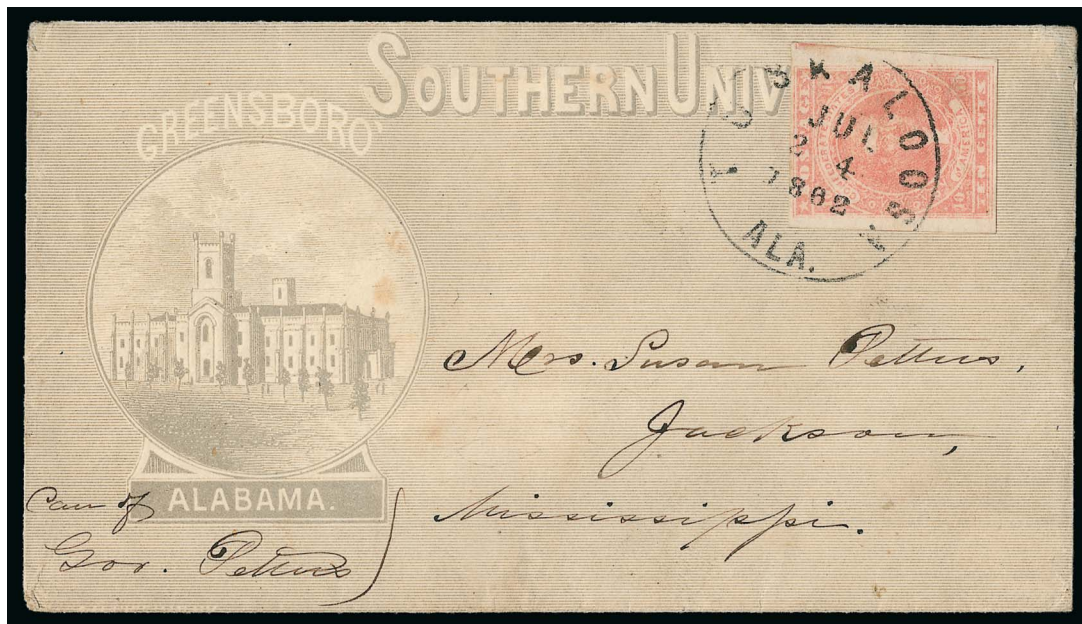 SOUTHERN UNIV
GREENSBORO'
ALABAMA.
TUSKALOOSA
JUL
24
1862
ALA.
TEN CENTS
Mrs. Susan Pettus,
Jackson,
Mississippi.
Care of
Gov. Pettus